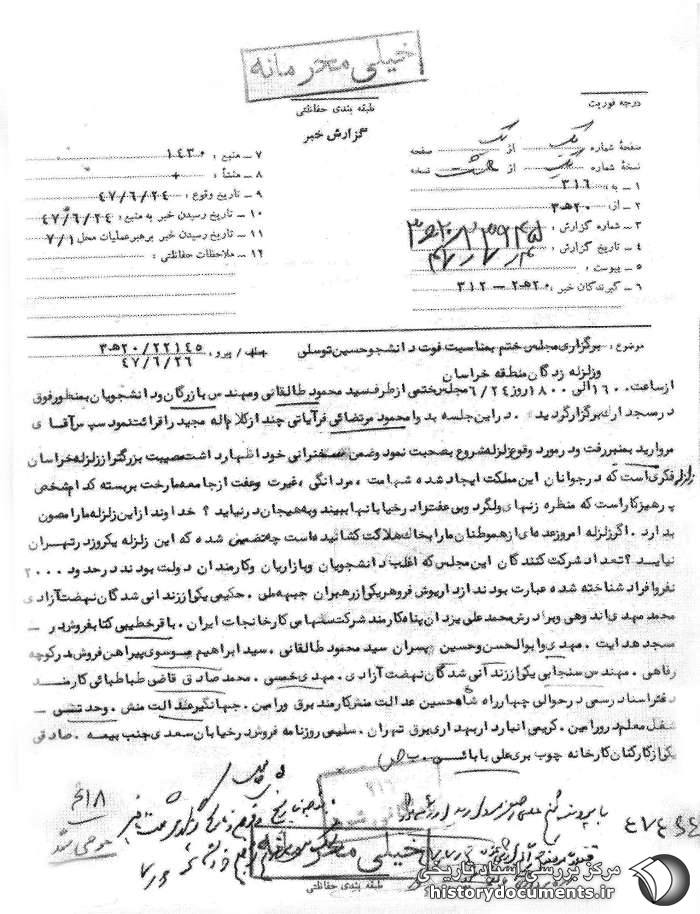 خیلی محرمانه
طبقه بندی حفاظتی
درجه فوریت
گزارش خبر
صفحهٔ شماره یک از یک صفحه
نسخهٔ شماره یک از نسخه
۱ ـ به : ۳۱۶
۲ ـ از : ۲۰ه۳
۳ ـ شماره گزارش :
۴ ـ تاریخ گزارش :
۵ ـ پیوست :
۶ ـ گیرندگان خبر : ۲۰ه۲ ـ ۳۱۲
۷ ـ منبع : ۱۴۳۰
۸ ـ منشأ : +
۹ ـ تاریخ وقوع : ۴۷/۶/۲۴
۱۰ ـ تاریخ رسیدن خبر به منبع : ۴۷/۶/۲۴
۱۱ ـ تاریخ رسیدن خبر برهبر عملیات محل ۷/۱
۱۲ ـ ملاحظات حفاظتی :
موضوع : برگزاری مجلس ختم بمناسبت فوت دانشجو حسین توسلی
و زلزله زدگان منطقه خراسان
/ پیرو : ۲۲۱۴۵/۲۰ه۳
۴۷/۶/۲۶
از ساعت ۱۶۰۰ الی ۱۸۰۰ روز ۶/۲۴ مجلس ختمی از طرف سید محمود طالقانی و مهندس بازرگان و دانشجویان بمنظور فوق
در مسجد ارك برگزار گردید . در این جلسه بدوا محمود مرتضائی فر آیاتی چند از کلام اله مجید را قرائت نمود سپس آقای
مروارید بمنبر رفت و در مورد وقوع زلزله شروع بصحبت نمود و ضمن سخنرانی خود اظهار داشت مصیبت بزرگتر از زلزله خراسان زلزله
فکری است که در جوانان این مملکت ایجاد شده شهامت ، مردانگی ، غیرت و عفت از جامعه ما رخت بربسته کدام شخص
پرهیزکار است که منظره زنهای ولگرد و بی عفت را در خیابانها ببیند و بهیجان در نیاید ؟ خداوند از این زلزله ما را مصون
بدارد . اگر زلزله امروز عده ای از هموطنان ما را بخاك هلاکت کشانیده است چه تضمینی شده که این زلزله یکروز در تهران
نیاید ؟ تعداد شرکت کنندگان این مجلس که اغلب دانشجویان و بازاریان و کارمندان دولت بودند در حدود ۲۰۰۰
نفر و افراد شناخته شده عبارت بودند از داریوش فروهر یکی از رهبران جبهه ملی . حکیمی یکی از زندانی شدگان نهضت آزادی
محمد مهدی اند وهی و برادرش محمد علی یزدان پناه کارمند شرکت سهامی کارخانجات ایران . باقر خطیبی کتابفروش در ـ
مسجد هدایت . مهدی و ابوالحسن و حسین پسران سید محمود طالقانی . سید ابراهیم موسوی پیراهن فروش در کوچه
رفاهی . مهندس سنجابی یکی از زندانی شدگان نهضت آزادی . مهدی خمسی . محمد صادق قاضی طباطبائی کارمند
دفتر اسناد رسمی در حوالی چهارراه شاه حسین عدالت منش کارمند برق ورامین . جهانگیر عدالت منش . وحدتی ـ
شغل معلم در ورامین . کریمی انباردار بهداری برق تهران . سلیمی روزنامه فروش در خیابان سعدی جنب بیمه . صادقی
یکی از کارکنان کارخانه چوب بری علی بابائی .
۳۱۶
خیلی محرمانه
طبقه بندی حفاظتی
مرکز بررسی اسناد تاریخی
historydocuments.ir